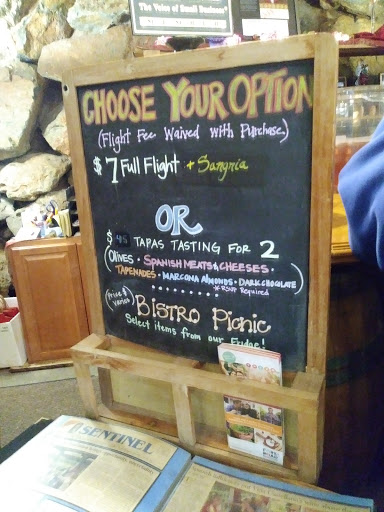 The Voice of Small Business
CHOOSE YOUR OPTION
(Flight Fee Waived with Purchase.)
$7 Full Flight + Sangria
OR
$45 TAPAS TASTING FOR 2
(OLIVES • SPANISH MEATS & CHEESES •
TAPENADES • MARCONA ALMONDS • DARK CHOCOLATE)
*RSVP Required
(Price $ varies) BISTRO PICNIC
Select items from our Fridge!
SENTINEL